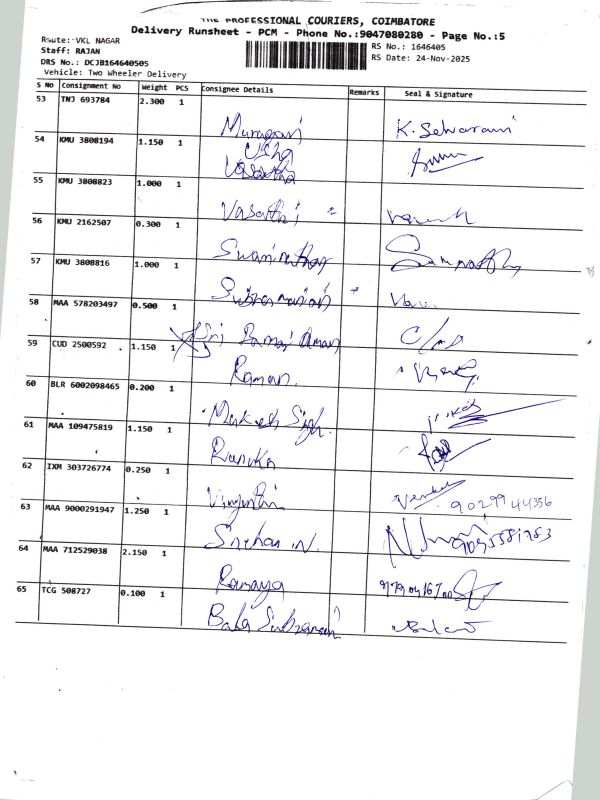 THE PROFESSIONAL COURIERS, COIMBATORE
Delivery Runsheet - PCM - Phone No.:9047080280 - Page No.:5
Route: VKL NAGAR
Staff: RAJAN
DRS No.: DCJB164640505
Vehicle: Two Wheeler Delivery
RS No.: 1646405
RS Date: 24-Nov-2025
S No Consignment No Weight PCS Consignee Details Remarks Seal & Signature
53 TNJ 693784 2.300 1 Murugan K. Selvarani
54 KMU 3808194 1.150 1 Usha Vasantha
55 KMU 3808823 1.000 1 Vasathi
56 KMU 2162507 0.300 1 Swaminathan
57 KMU 3808816 1.000 1 Subramanian
58 MAA 578203497 0.500 1 Sri
59 CUD 2500592 1.150 1 Raman
60 BLR 6002098465 0.200 1 Mukesh Singh
61 MAA 109475819 1.150 1 Ranuka
62 IXM 303726774 0.250 1 Venkat 90299 44356
63 MAA 9000291947 1.250 1 N.
64 MAA 712529038 2.150 1 Ramaya
65 TCG 508727 0.100 1 Bala